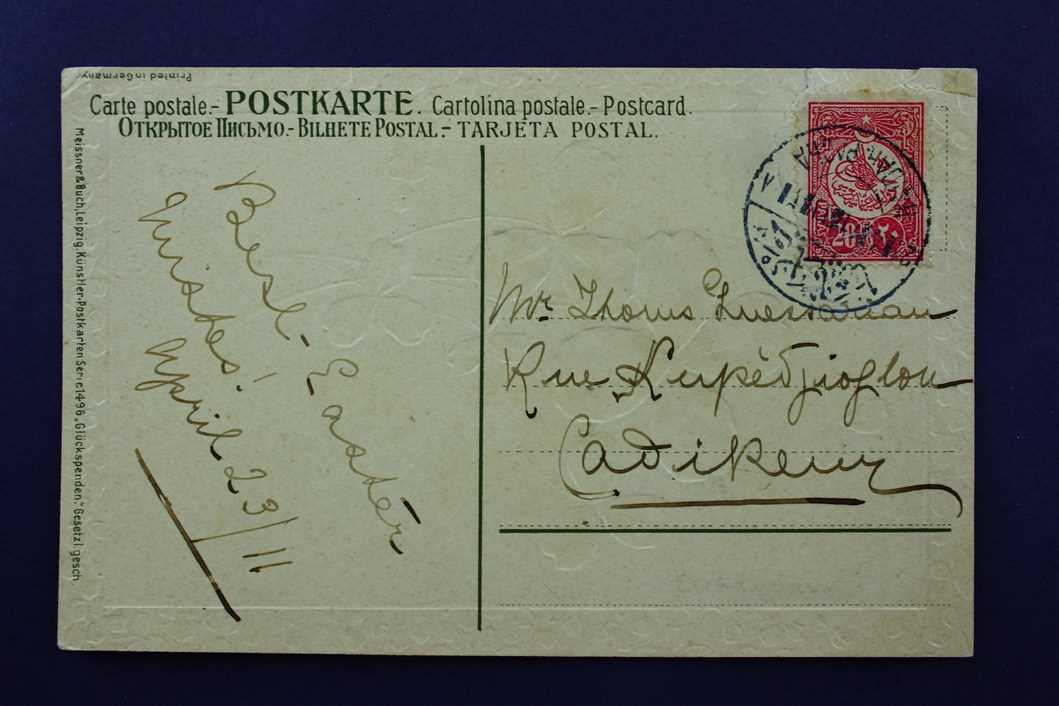 Printed in Germany
Carte postale.- POSTKARTE. Cartolina postale.- Postcard.
ОТКРЫТОЕ ПИСЬМО.- BILHETE POSTAL.- TARJETA POSTAL.
Meissner & Buch, Leipzig. Künstler-Postkarten Serie 1496 „Glückspenden.“ Gesetzl. gesch.
Best Easter
Wishes!
April 23/11
20 ٢٠
PARAS
Mr. Thoms
Rue Kupédjioglou
Cadikeuy